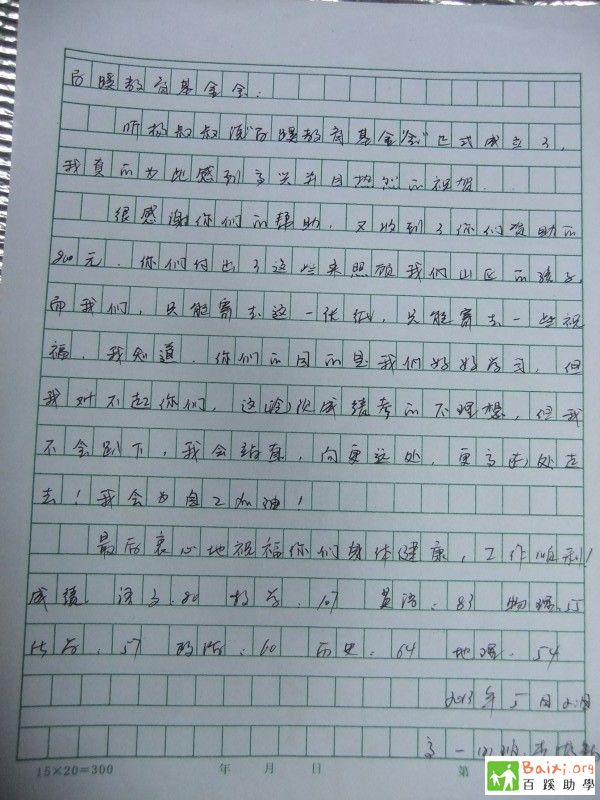 后暖教育基金会:
听杨叔叔说“后暖教育基金会”已正式成立了,
我真的为此感到高兴并且热烈的祝贺.
很感谢你们的帮助,又收到了你们资助的
800元.你们付出了这些来照顾我们山区的孩子,
而我们,只能寄去这一张纸,只能寄去一些祝
福.我知道.你们的目的是我们好好学习,但
我对不起你们,这次成绩考的不理想,但我
不会趴下,我会站起,向更远处,更高处走
去!我会为自己加油!
最后衷心地祝福你们身体健康,工作顺利!
成绩.语文:80 数学:107 英语:83 物理:55
化学:57 政治:60 历史:64 地理:54
2013年5月
高一
15×20=300 年 月 日 第
Baixi.org
百蹊助學